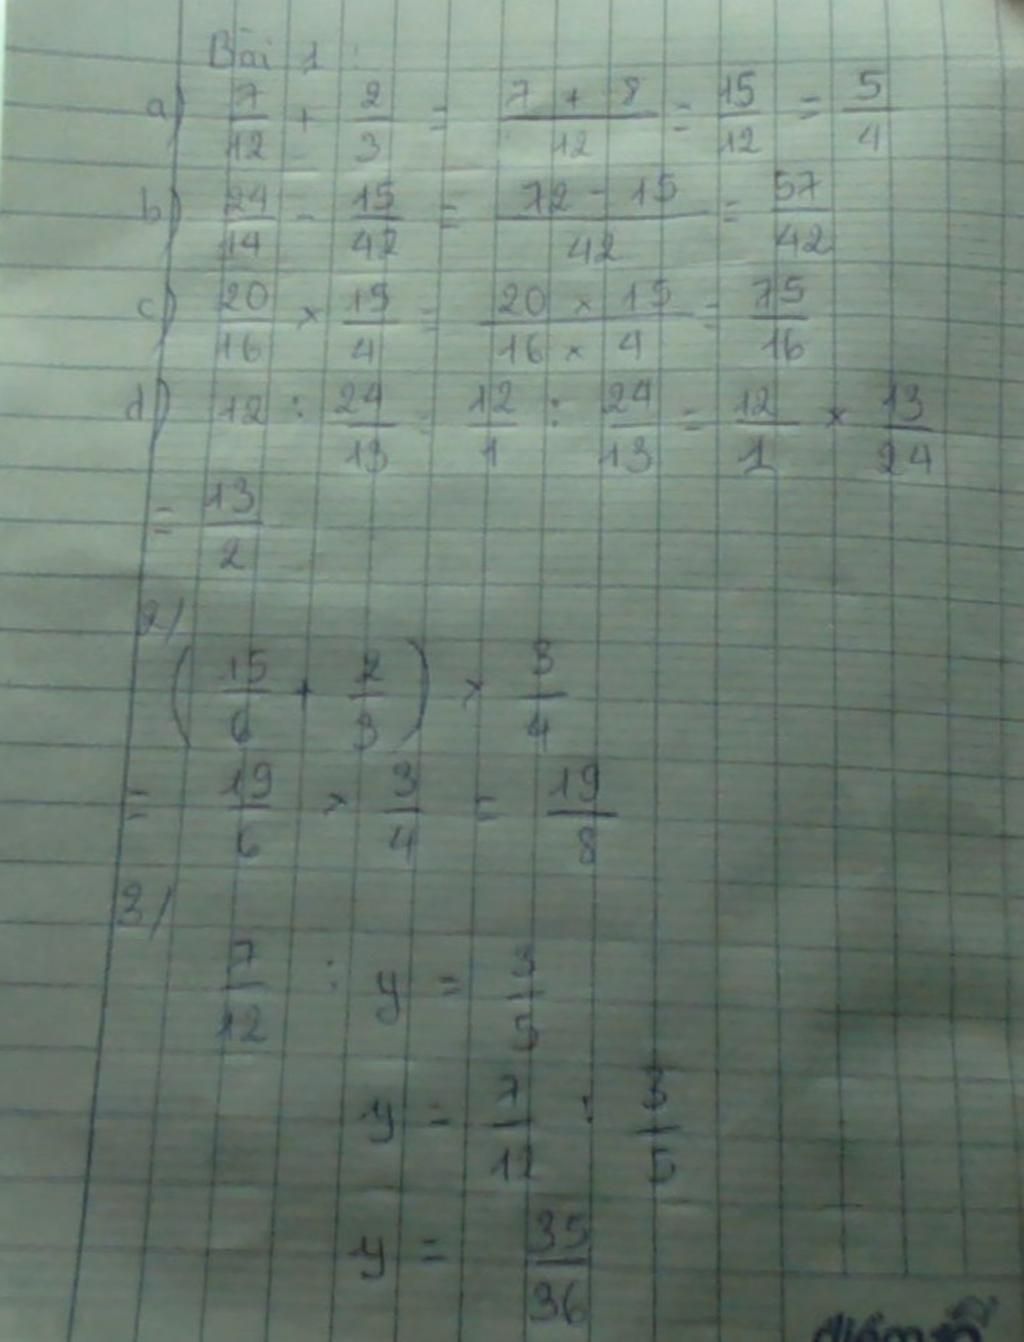 Bài 1 :
a) 7/12 + 2/3 = (7 + 8)/12 = 15/12 = 5/4
b) 24/14 - 15/42 = (72 - 15)/42 = 57/42
c) 20/16 × 15/4 = (20 × 15)/(16 × 4) = 75/16
d) 12 : 24/13 = 12/1 : 24/13 = 12/1 × 13/24
= 13/2
2/
(15/6 + 2/3) × 3/4
= 19/6 × 3/4 = 19/8
3/
7/12 : y = 3/5
y = 7/12 : 3/5
y = 35/36